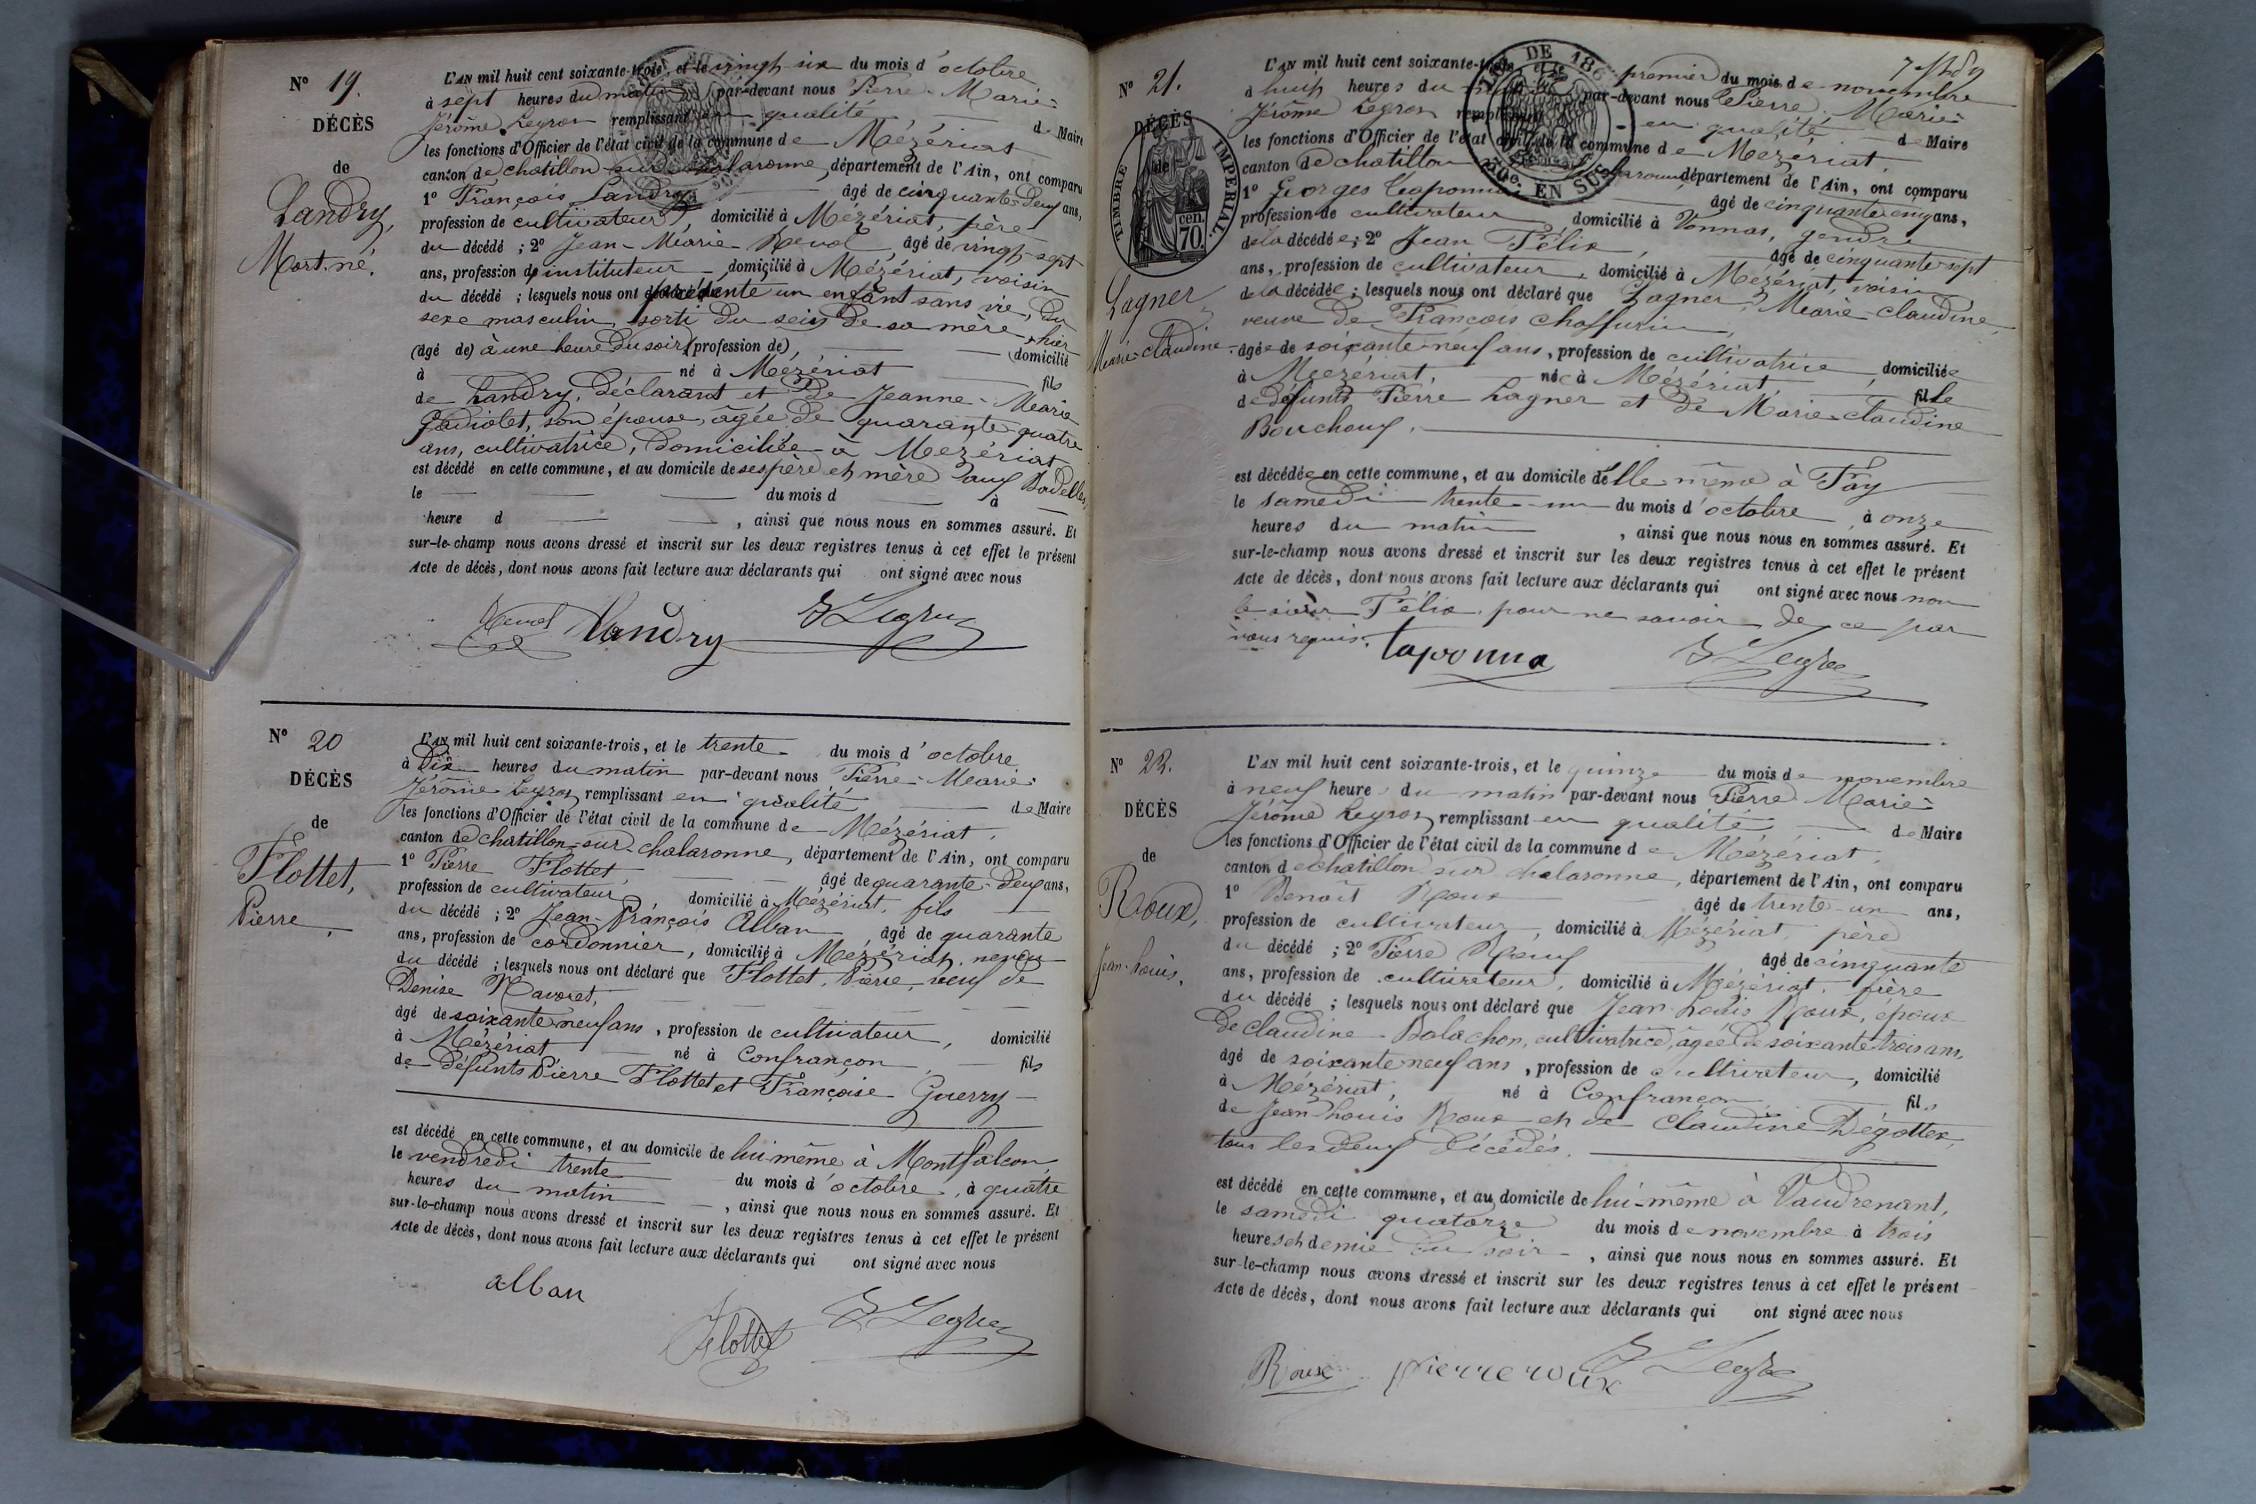 N° 19.
DÉCÈS
de
Landry,
Mort-né.
L'AN mil huit cent soixante-trois, et le vingt-six du mois d'octobre
à sept heures du matin par-devant nous Pierre-Marie-
Jérôme Legros remplissant en qualité de Maire
les fonctions d'Officier de l'état civil de la commune de Mézériat
canton de chatillon sur chalaronne, département de l'Ain, ont comparu
1° François Landry âgé de cinquante-deux ans,
profession de cultivateur, domicilié à Mézériat, père
du décédé ; 2° Jean-Marie âgé de vingt-sept
ans, profession d'instituteur domicilié à Mézériat, voisin
du décédé ; lesquels nous ont présenté un enfant sans vie, du
sexe masculin, sorti du sein de sa mère, hier
(âgé de) à une heure du soir (profession de) domicilié
à né à Mézériat fils
de Landry, déclarant et de Jeanne-Marie
Gadiolet, son épouse, âgée de quarante quatre
ans, cultivatrice, domiciliée à Mézériat
est décédé en cette commune, et au domicile de ses père et mère aux
le du mois d à
heure d , ainsi que nous nous en sommes assuré. Et
sur-le-champ nous avons dressé et inscrit sur les deux registres tenus à cet effet le présent
Acte de décès, dont nous avons fait lecture aux déclarants qui ont signé avec nous
Landry J Legros
N° 20
DÉCÈS
de
Flottet,
Pierre.
L'AN mil huit cent soixante-trois, et le trente du mois d'octobre
à Dix heures du matin par-devant nous Pierre-Marie-
Jérôme Legros, remplissant en qualité de Maire
les fonctions d'Officier de l'état civil de la commune de Mézériat,
canton de chatillon-sur-chalaronne, département de l'Ain, ont comparu
1° Pierre Flottet, âgé de quarante-deux ans,
profession de cultivateur domicilié à Mézériat, fils
du décédé ; 2° Jean-François Alban, âgé de quarante
ans, profession de cordonnier, domicilié à Mézériat, neveu
du décédé ; lesquels nous ont déclaré que Flottet, Pierre, veuf de
Denise Ravoret,
âgé de soixante neuf ans, profession de cultivateur, domicilié
à Mézériat né à Confrançon, fils
de défunts Pierre Flottet et Françoise Guerry
est décédé en cette commune, et au domicile de lui même à Montfalcon,
le vendredi trente du mois d'octobre, à quatre
heures du matin, ainsi que nous nous en sommes assuré. Et
sur-le-champ nous avons dressé et inscrit sur les deux registres tenus à cet effet le présent
Acte de décès, dont nous avons fait lecture aux déclarants qui ont signé avec nous
alban
Flottet J Legros
N° 21.
DÉCÈS
de
TIMBRE IMPERIAL.
cen.
70.
DE 186
EN SUS
Lagner
Marie-claudine.
L'AN mil huit cent soixante-trois, et le premier du mois de novembre
à huit heures du par-devant nous Pierre Marie-
Jérôme Legros remplissant en qualité de Maire
les fonctions d'Officier de l'état civil de la commune de Mézériat,
canton de chatillon chalaronne département de l'Ain, ont comparu
1° Georges Taponna âgé de cinquante cinq ans,
profession de cultivateur domicilié à Vonnas, gendre
de la décédée ; 2° Jean Félix âgé de cinquante sept
ans, profession de cultivateur, domicilié à Mézériat, voisin
de la décédée ; lesquels nous ont déclaré que Lagner, Marie-claudine,
veuve de François chaffurin,
âgée de soixante neuf ans, profession de cultivatrice, domiciliée
à Mézériat, née à Mézériat, fille
de défunts Pierre Lagner et de Marie-claudine
Bouchoux.
est décédée en cette commune, et au domicile d'elle même à Fay
le samedi trente-un du mois d'octobre, à onze
heures du matin, ainsi que nous nous en sommes assuré. Et
sur-le-champ nous avons dressé et inscrit sur les deux registres tenus à cet effet le présent
Acte de décès, dont nous avons fait lecture aux déclarants qui ont signé avec nous non
le sieur Félix pour ne savoir de ce par
nous requis. taponna J Legros
N° 22.
DÉCÈS
de
Roux,
Jean-Louis,
L'AN mil huit cent soixante-trois, et le quinze du mois de novembre
à neuf heures du matin par-devant nous Pierre Marie-
Jérôme Legros, remplissant en qualité de Maire
les fonctions d'Officier de l'état civil de la commune de Mézériat,
canton de chatillon sur chalaronne, département de l'Ain, ont comparu
1° Benoît Roux âgé de trente-un ans,
profession de cultivateur, domicilié à Mézériat, père
du décédé ; 2° Pierre Roux âgé de cinquante
ans, profession de cultivateur, domicilié à Mézériat, frère
du décédé ; lesquels nous ont déclaré que Jean-Louis Roux, époux
de claudine Bolachon, cultivatrice, âgée de soixante trois ans,
âgé de soixante neuf ans, profession de cultivateur, domicilié
à Mézériat, né à Confrançon, fils
de Jean-Louis Roux et de Claudine Dégottex,
tous les deux décédés.
est décédé en cette commune, et au domicile de lui-même à Vaudrenant,
le samedi quatorze du mois de novembre à trois
heures et demie du soir, ainsi que nous nous en sommes assuré. Et
sur-le-champ nous avons dressé et inscrit sur les deux registres tenus à cet effet le présent
Acte de décès, dont nous avons fait lecture aux déclarants qui ont signé avec nous
Roux pierre roux J Legros